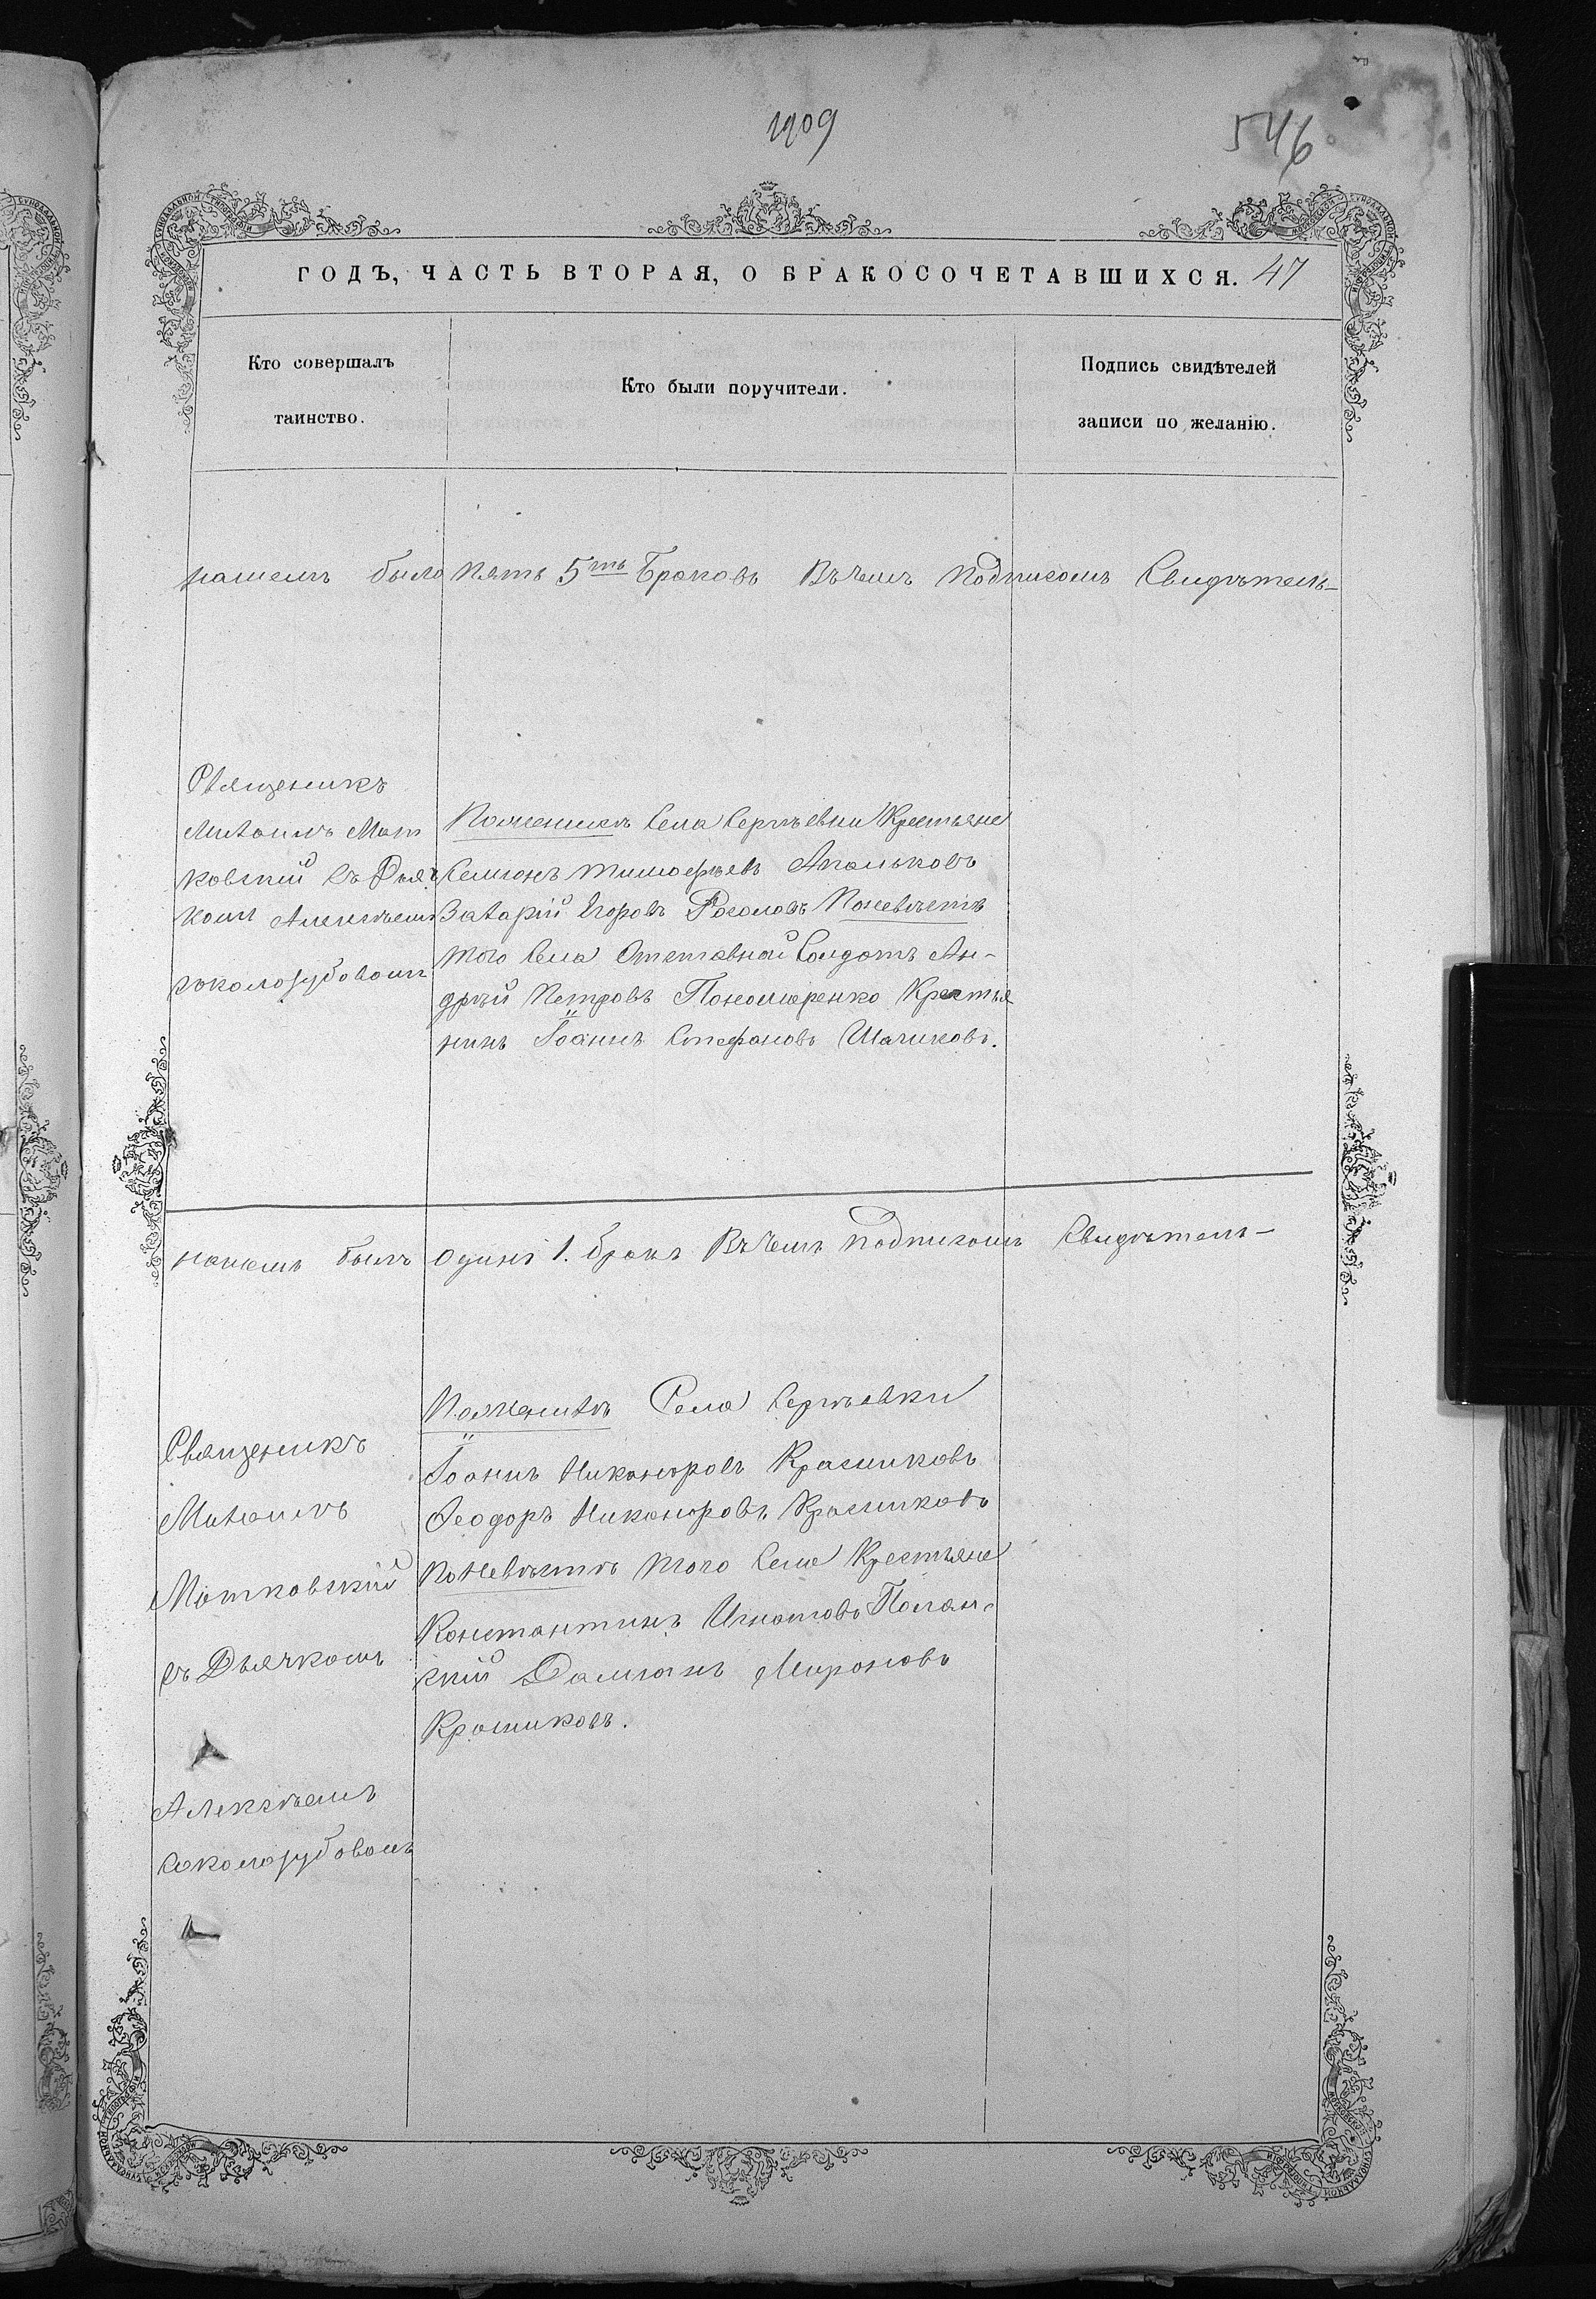 1909
546
ГОДЪ, ЧАСТЬ ВТОРАЯ, О БРАКОСОЧЕТАВШИХСЯ. 47
Кто совершалъ
таинство.
Кто были поручители.
Подпись свидѣтелей
записи по желанію.
нашемъ было пять 5ть Браковъ Въ чемъ подписомъ Свидѣтель-
Священикъ
Михаилъ Мат
ковский съ Дья
комъ Алексѣемъ
Соколозубовымъ
По женихѣ Села Сергѣевки Крестьяне
Семіонъ Тимофѣевъ Апальковъ
Захарій Егоровъ По невѣстѣ
того Села Отставной Солдатъ Ан-
дрей Петровъ Пономаренко Крестья
нинъ Іоаннъ Стефановъ
нашемъ былъ одинъ 1. бракъ Въ чемъ подписомъ Свидѣтель-
Священикъ
Михаилъ
Матковский
съ Дьячкомъ
Алексѣемъ
Соколозубовымъ
По женихѣ Села Сергѣевки
Іоаннъ Никаноровъ Крашиковъ
Феодоръ Никаноровъ Крашиковъ
По невѣстѣ того Села Крестьяне
Константинъ Игнатовъ Полян-
ский Даміанъ Мироновъ
Крашиковъ.